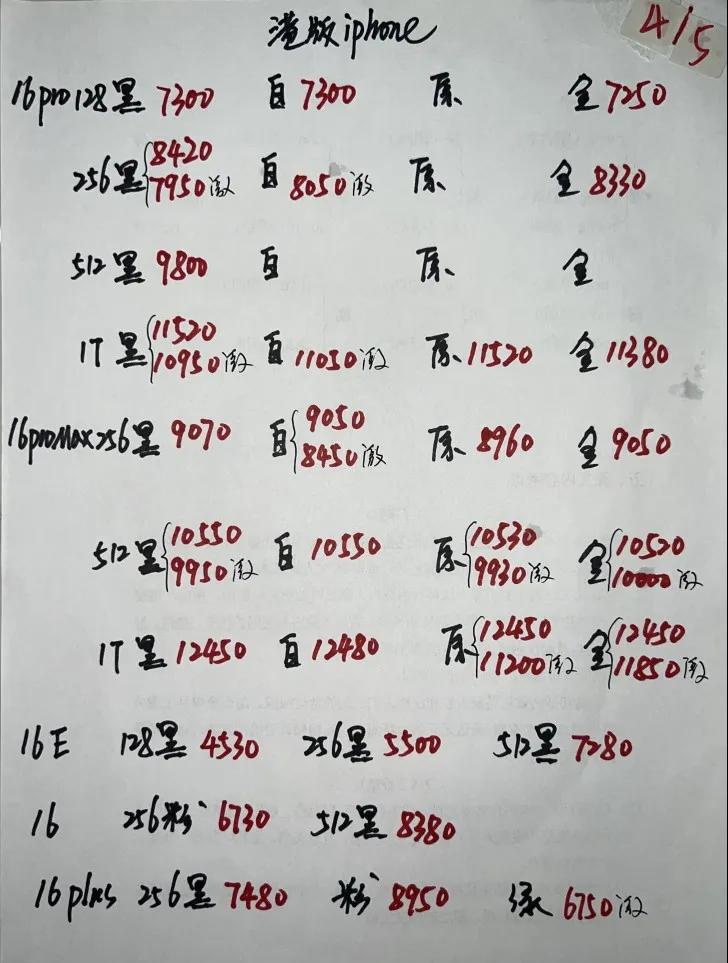 港版iphone 4/5
16pro128黑 7300 白 7300 原 金 7250
256黑 8420 7950激 白 8050激 原 金 8330
512黑 9800 白 原 金
1T 黑 11520 10950激 白 11050激 原 11520 金 11380
16proMax256黑 9070 白 9050 8450激 原 8960 金 9050
512黑 10550 9950激 白 10550 原 10530 9930激 金 10520 10000激
1T 黑 12450 白 12480 原 12450 11200激 金 12450 11850激
16E 128黑 4530 256黑 5500 512黑 7280
16 256粉 6730 512黑 8380
16plus 256黑 7480 粉 8950 绿 6750激